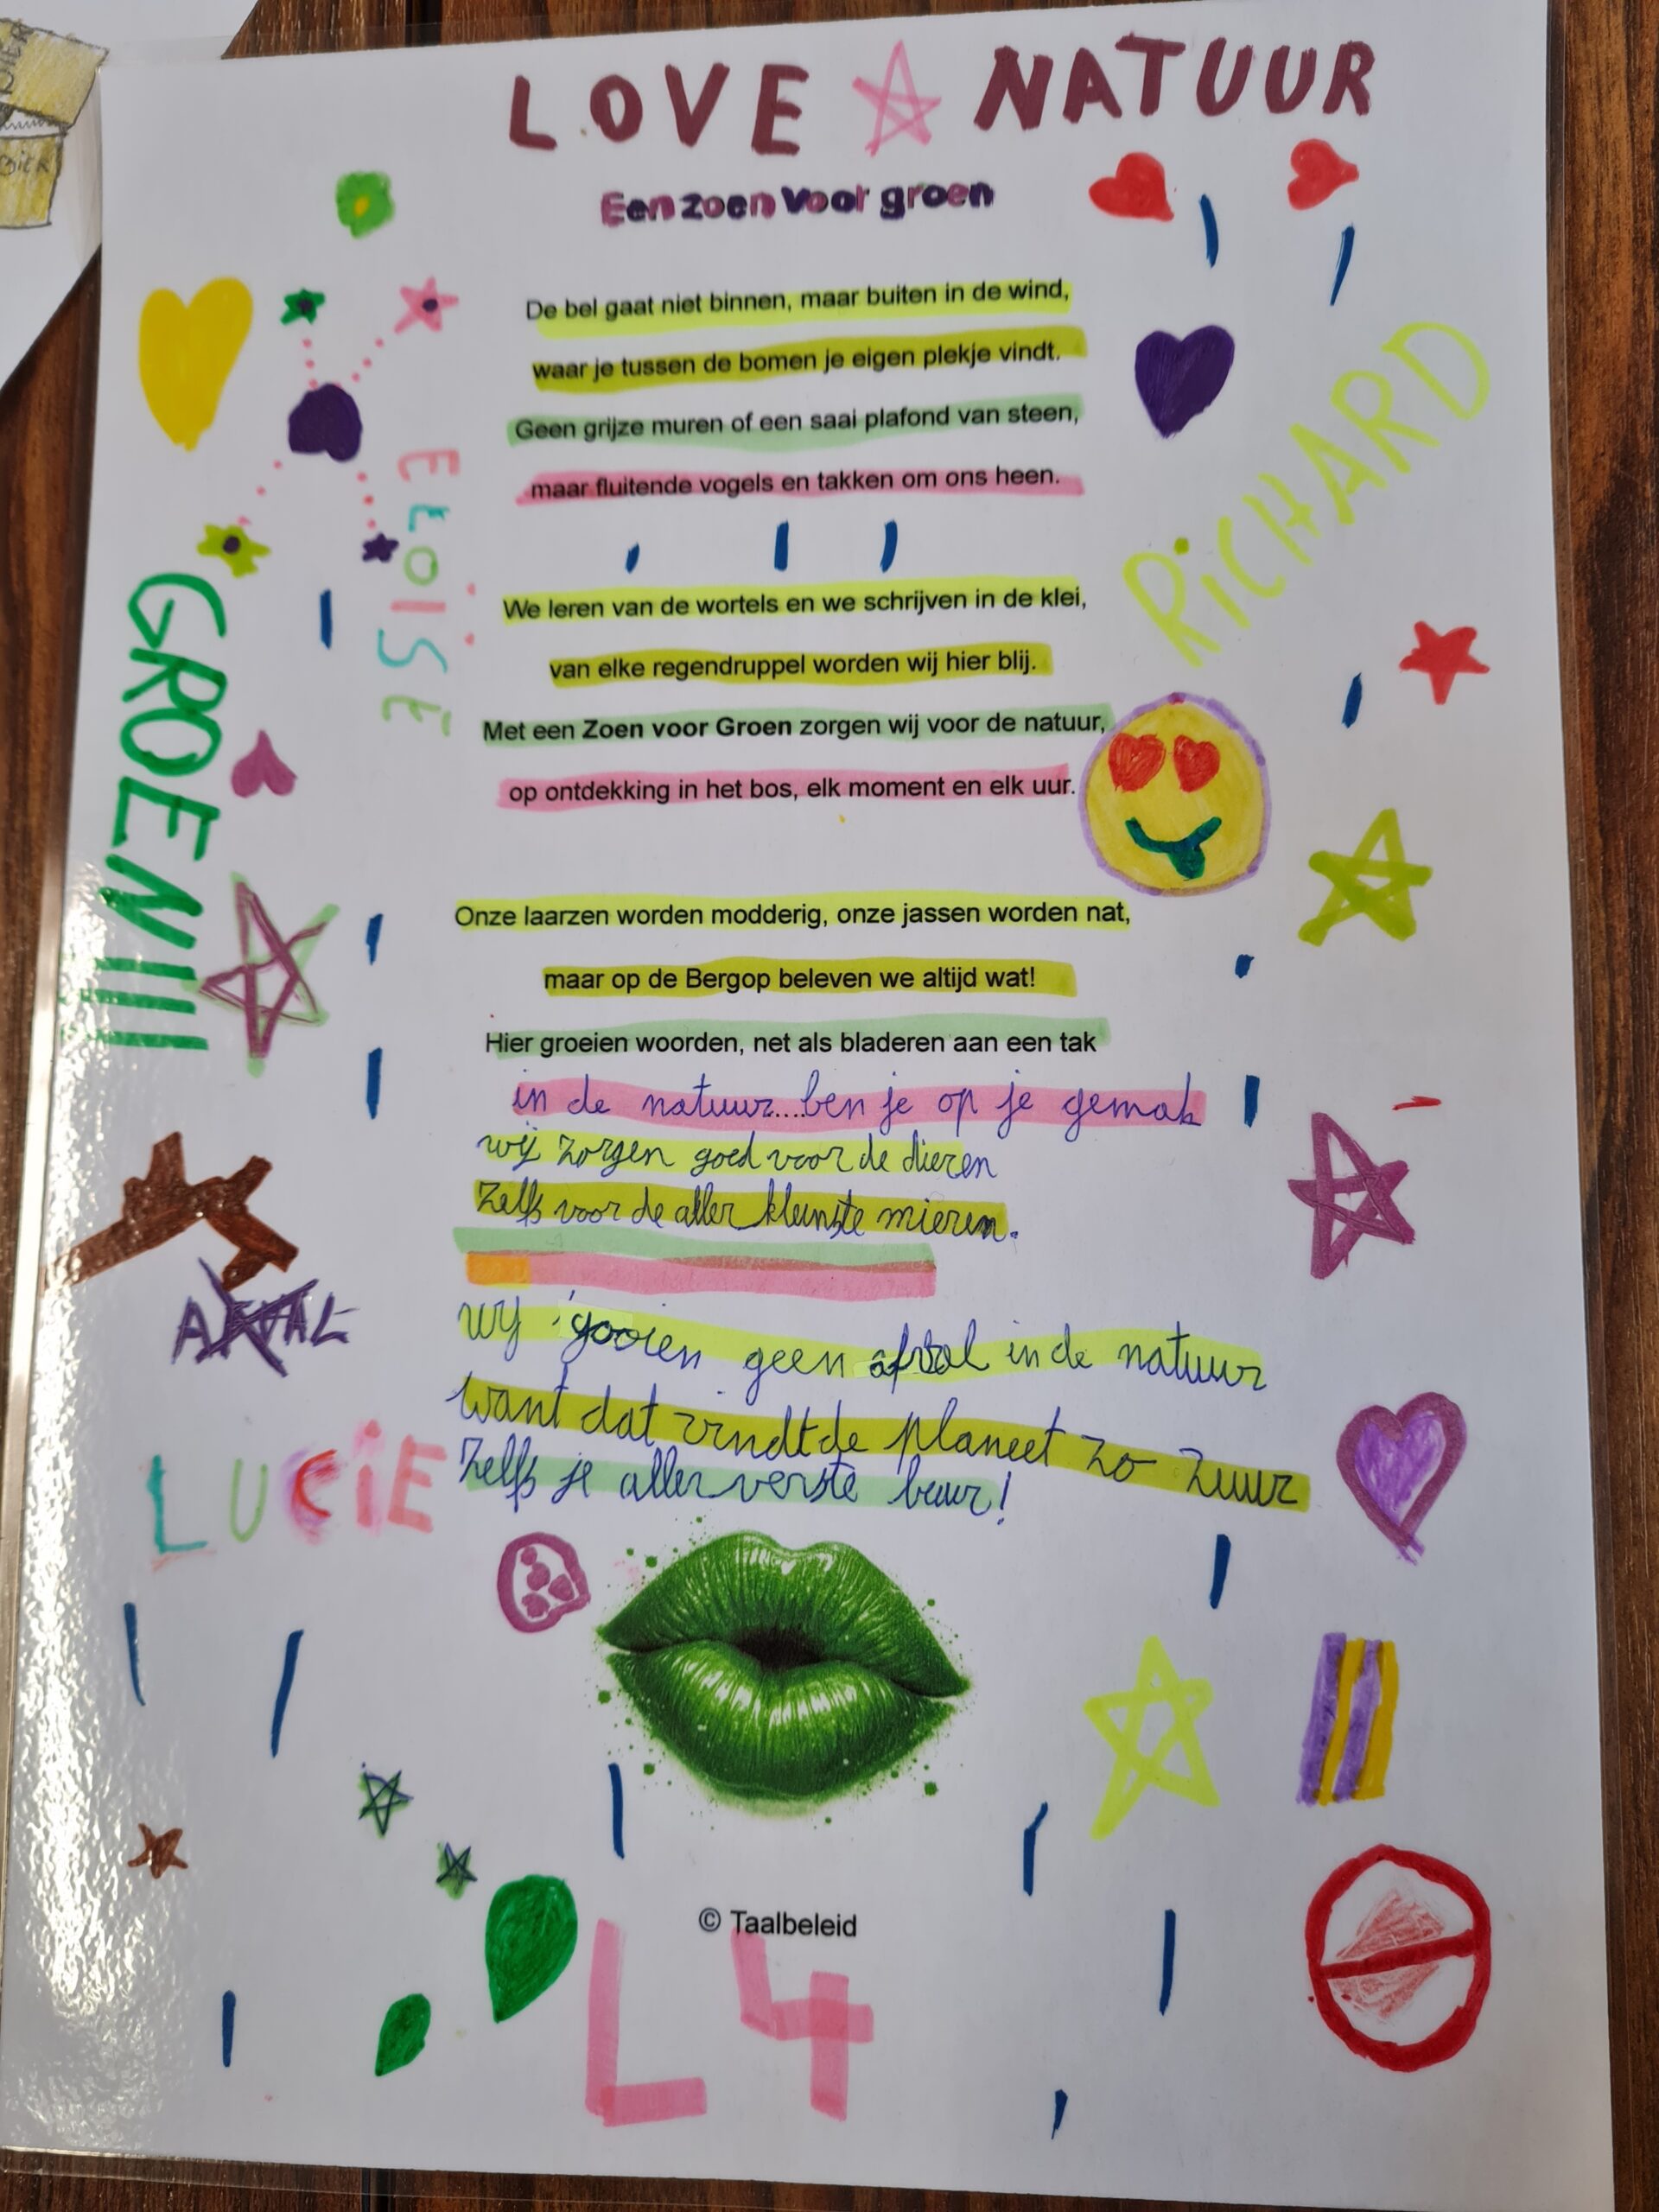 LOVE NATUUR
Een zoen voor groen
De bel gaat niet binnen, maar buiten in de wind,
waar je tussen de bomen je eigen plekje vindt.
Geen grijze muren of een saai plafond van steen,
maar fluitende vogels en takken om ons heen.
ELOÏSE
RiCHARD
GROEN!!!!
We leren van de wortels en we schrijven in de klei,
van elke regendruppel worden wij hier blij.
Met een Zoen voor Groen zorgen wij voor de natuur,
op ontdekking in het bos, elk moment en elk uur.
Onze laarzen worden modderig, onze jassen worden nat,
maar op de Bergop beleven we altijd wat!
Hier groeien woorden, net als bladeren aan een tak
in de natuur....ben je op je gemak
wij zorgen goed voor de dieren
Zelfs voor de aller kleinste mieren.
AFVAL
wij gooien geen afval in de natuur
want dat vindt de planeet zo zuur
Zelfs je aller verste buur!
LUCiE
© Taalbeleid
L4